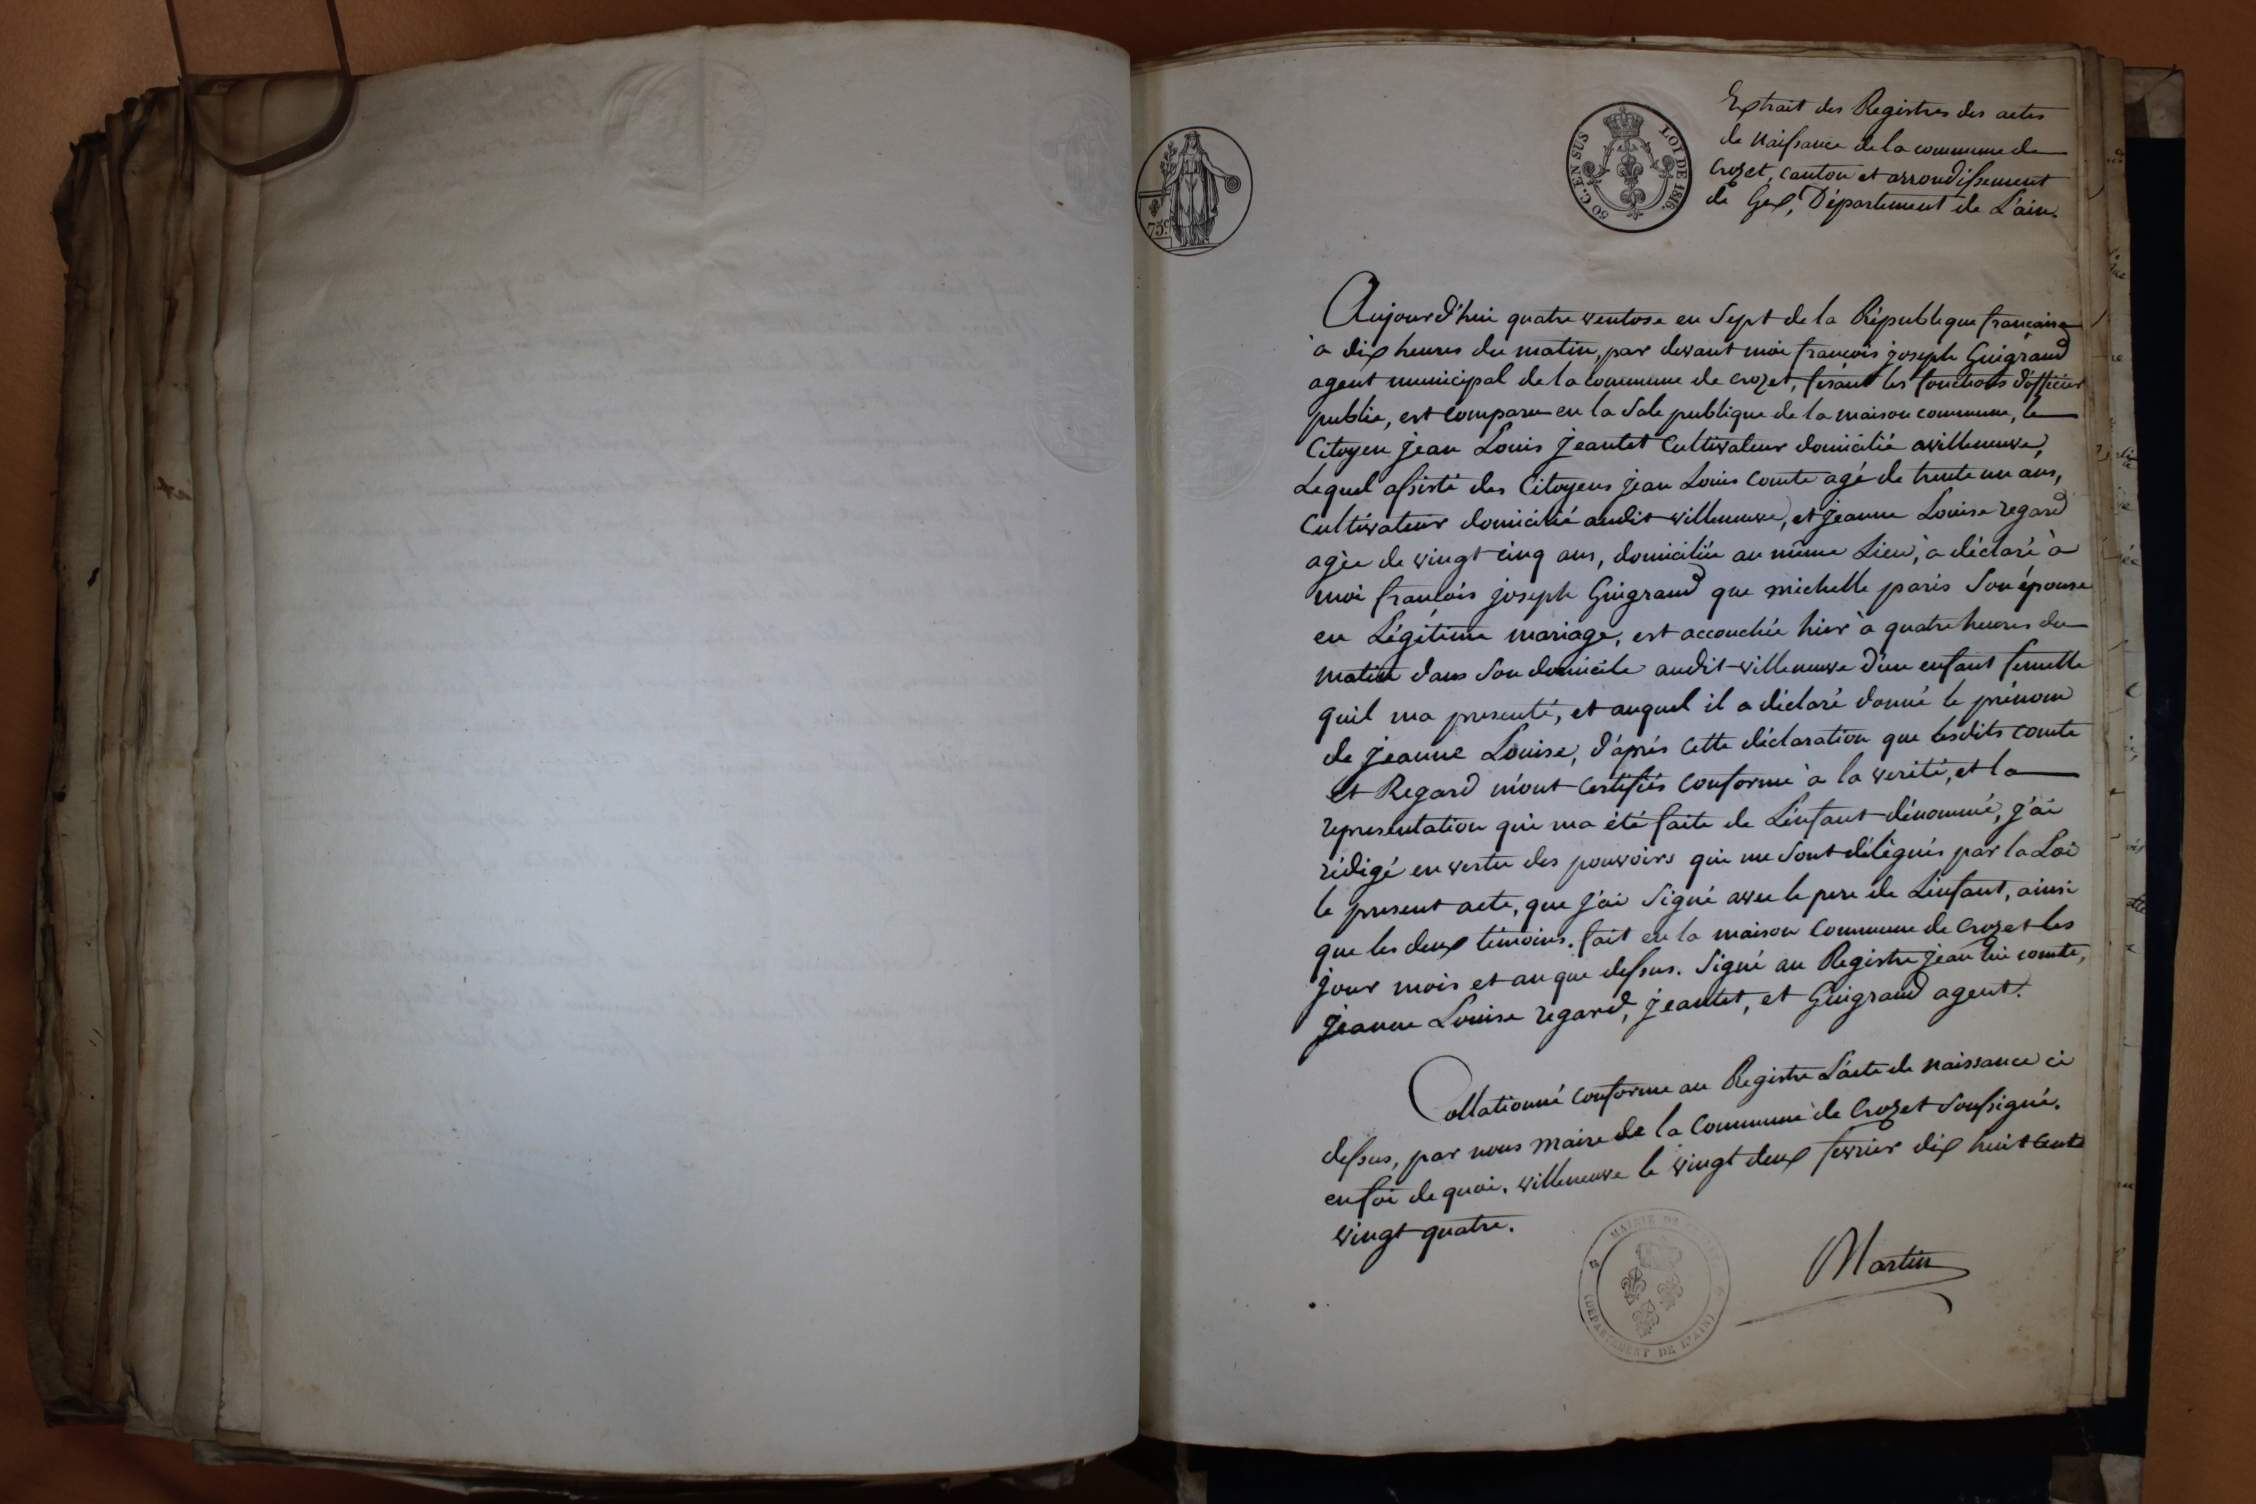 Extrait des Registres des actes
de naissance de la commune de
Crozet, canton et arrondissement
de Gex, Département de L'ain.
50 C. EN SUS
LOI DE 1816.
75 c.
Aujourd'hui quatre ventose en sept de la République francaise
à dix heures du matin, par devant moi francois joseph Guigrand
agent municipal de la commune de crozet, fesant les fonctions d'officier
public, est comparu en la sale publique de la maison commune, le
Citoyen jean Louis jeantet Cultivateur domicilié avilleneuve,
Lequel assisté des Citoyens jean Louis comte agé de trente un ans,
Cultivateur domicilié audit villeneuve, et jeanne Louise regard
agée de vingt cinq ans, domiciliée au même Lieu, a déclaré à
moi francois joseph Guigrand que michelle paris son épouse
en Légitime mariage, est accouchée hier à quatre heures du
matin dans son domicile audit villeneuve d'un enfant femelle
quil ma presenté, et auquel il a déclaré donné le prénom
de jeanne Louise, d'après cette déclaration que lesdits comte
et Regard m'ont certifiés conforme à la verité, et la
representation qui ma été faite de L'enfant dénommé, j'ai
rédigé en vertu des pouvoirs qui me sont délégués par la Loi
le present acte, que j'ai signé avec le pere de L'enfant, ainsi
que les deux témoins. fait en la maison Commune de crozet les
jour mois et an que dessus. Signé au Registre jean Lui comte,
jeanne Louise regard, jeantet, et Guigrand agent.
Collationné conforme au Registre L'acte de naissance ci
dessus, par nous maire de la Commune de Crozet soussigné.
en foi de quoi. villeneuve le vingt deux fevrier dix huit cents
vingt quatre.
Martin
MAIRIE DE
(DEPARTEMENT DE L'AIN)